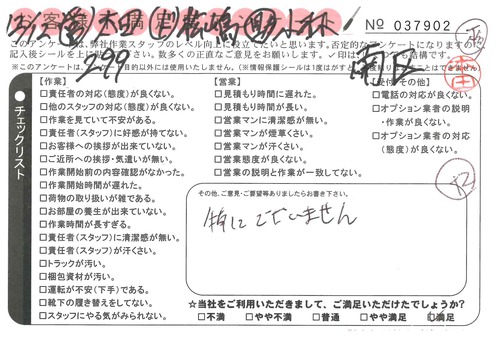 No 037902
このアンケートは、弊社作業スタッフのレベル向上に役立てたいと思います。否定的なアンケートになりますのに
記入後シールを上に
299
【作業】
□責任者の対応(態度)が良くない。
□他のスタッフの対応(態度)が良くない。
□作業を見ていて不安がある。
□責任者(スタッフ)に好感が持てない。
□お客様への挨拶が出来ていない。
□ご近所への挨拶・気遣いが無い。
□作業開始前の内容確認がなかった。
□作業開始時間が遅れた。
□荷物の取り扱いが雑である。
□お部屋の養生が出来ていない。
□作業時間が長すぎる。
□責任者(スタッフ)に清潔感が無い。
□責任者(スタッフ)が汗くさい。
□トラックが汚い。
□梱包資材が汚い。
□運転が不安(下手)である。
□靴下の履き替えをしてない。
□スタッフにやる気がみられない。
【営業】
□見積もり時間に遅れた。
□見積もり時間が長い。
□営業マンに清潔感が無い。
□営業マンが煙草くさい。
□営業マンが汗くさい。
□営業態度が良くない。
□営業の説明と作業が一致してない。
□電話の対応が良くない。
□オプション業者の説明
・作業が良くない。
□オプション業者の対応
(態度)が良くない。
チェックリスト
その他、ご意見・ご要望等ありましたらお書き下さい。
特にございません
☆当社をご利用いただきまして、ご満足いただけたでしょうか?
□不満 □やや不満 □普通 □やや満足 ☑満足